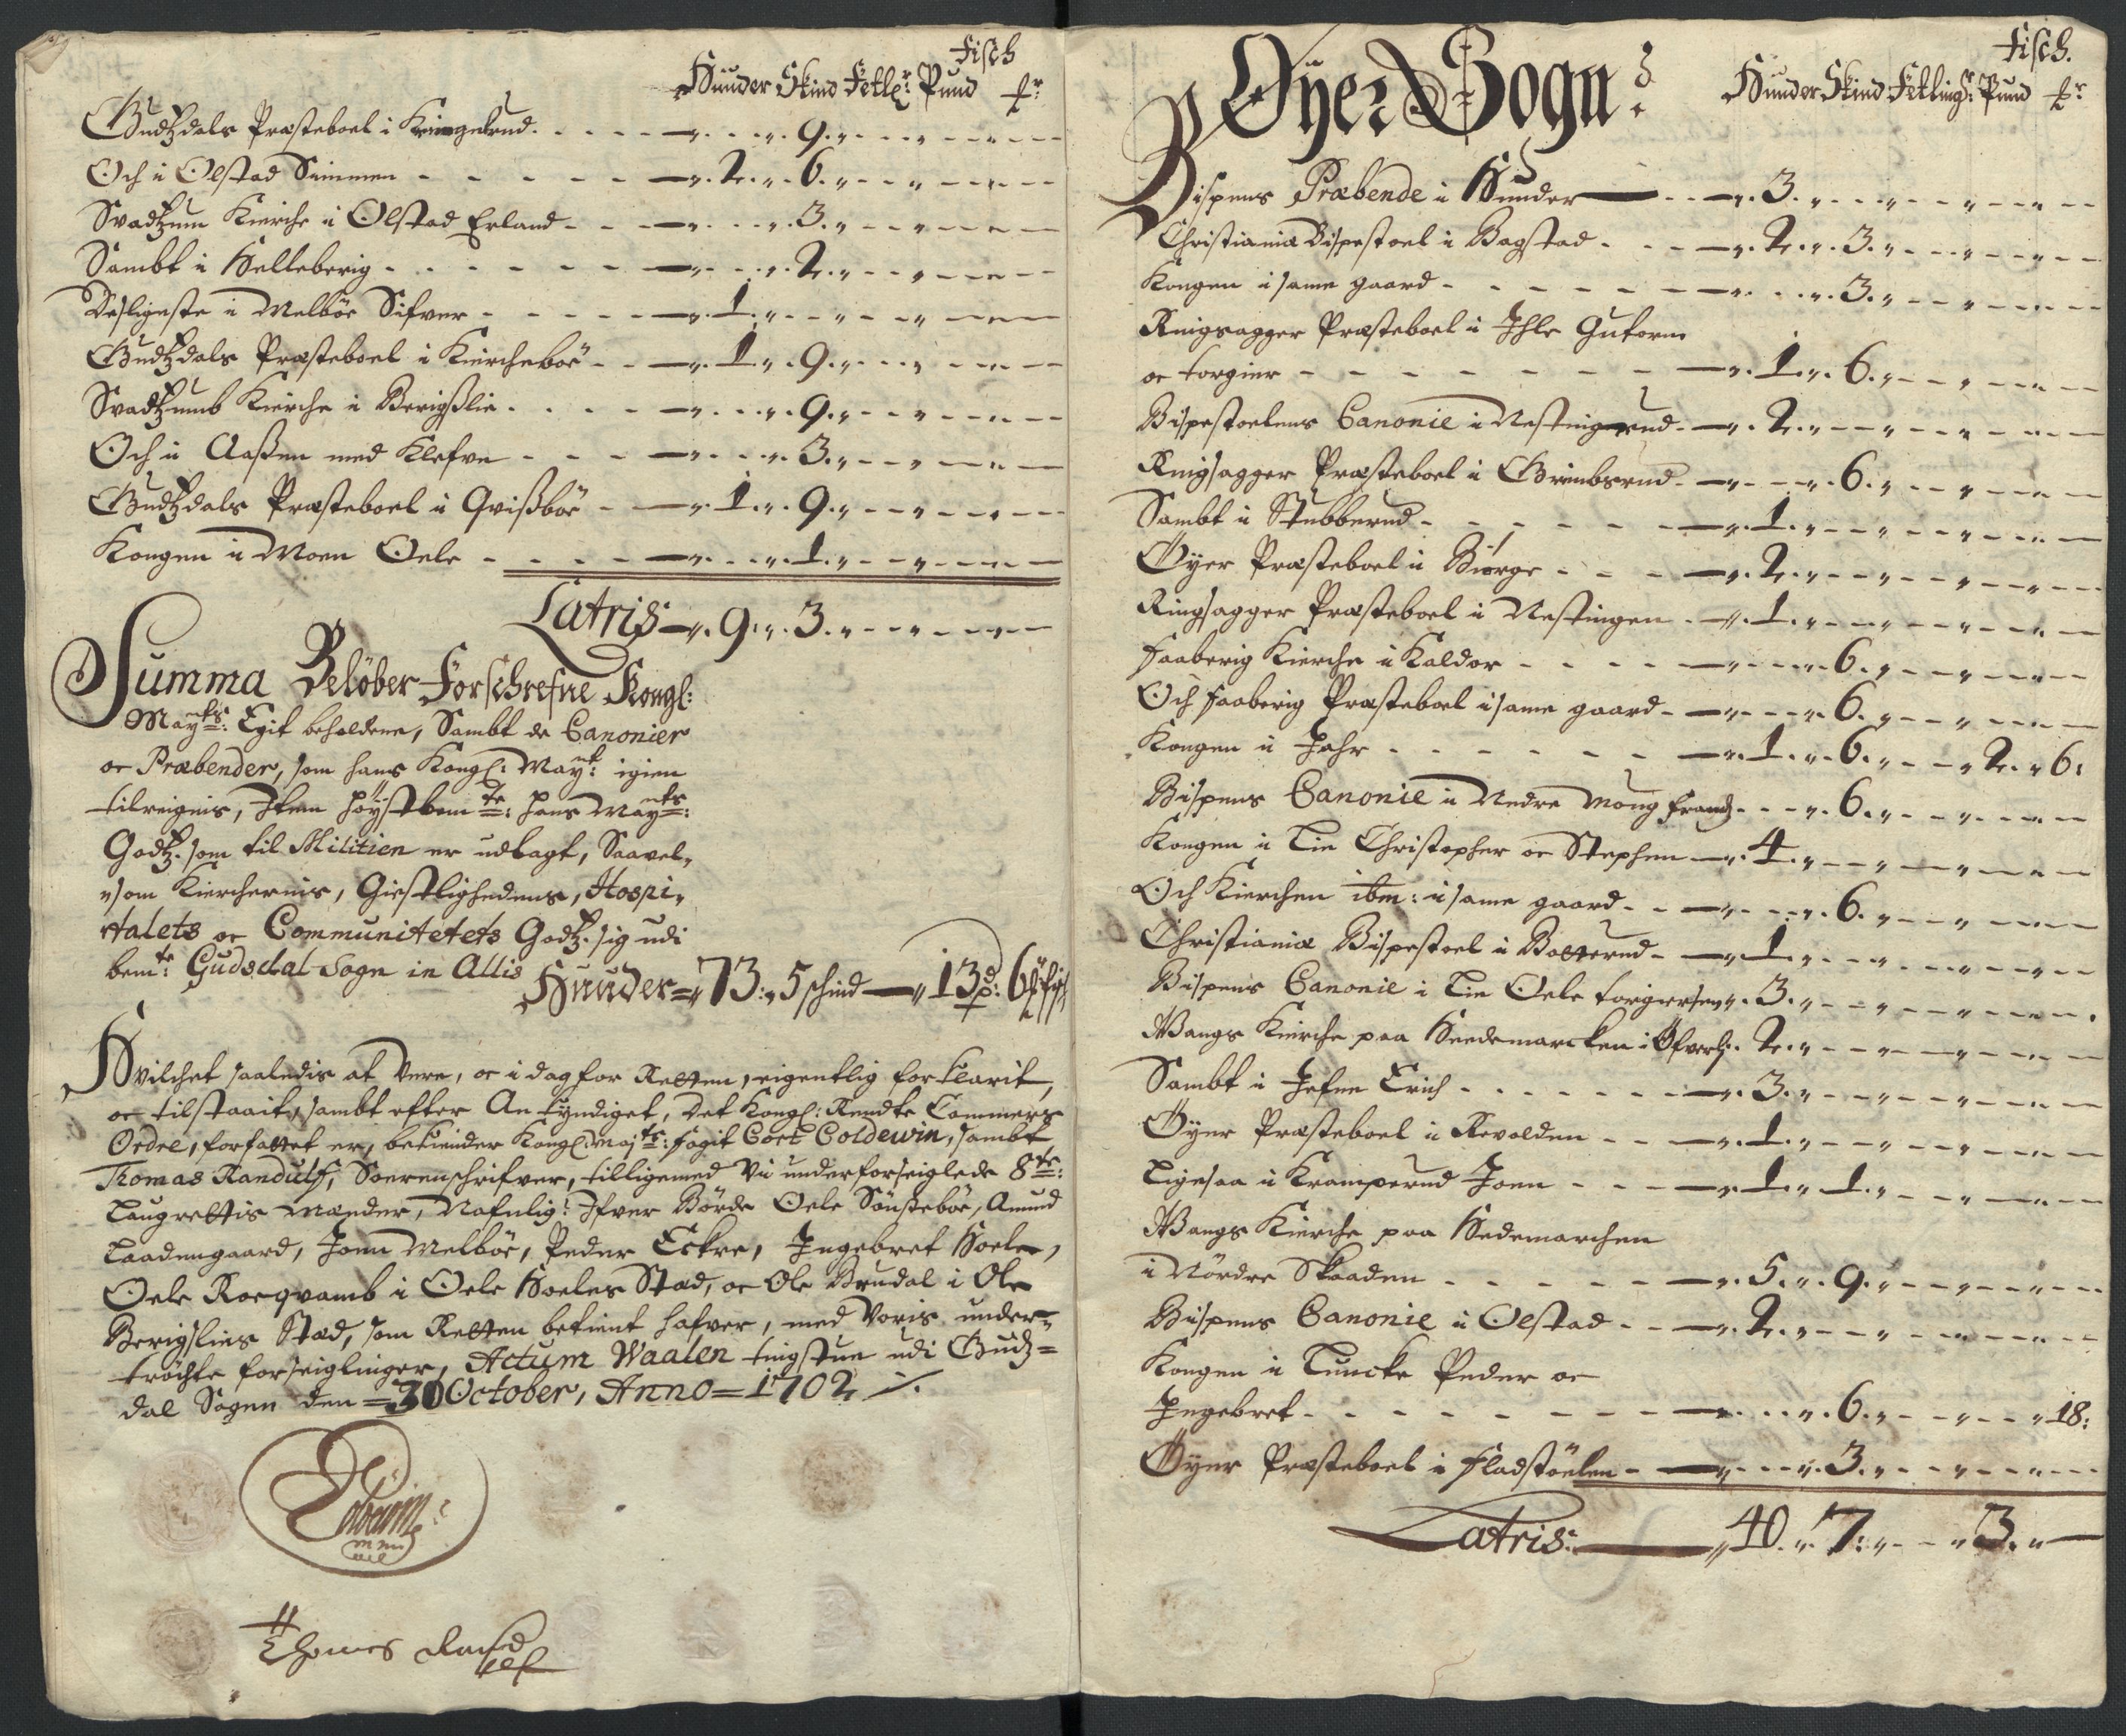 fisch
Hunder Skind Fetler: Pund ℔r:
Gudtzdals Præsteboel i Kringelrud. . . . . —„. . . „. 9. „ - - - „ - - „ - - -
Och i Olstad Simmen - - - - - —„. 2. „. 6. „ - - „ - - „ - -
Svadtzum Kierche i Olstad Erland - - —„. . . „. 3. „ - - „ - - „ - -
Sambt i Helleberig - - - - - - —„. . . „. 2. „ - - „ - - „ - -
Desligeste i Melböe Sifver - - - - —„. 1. „ - - „ - - „ - - „ - -
Gudtzdals Præsteboel i Kiercheböe - - —„. 1. „. 9. „ - - „ - - „ - -
Svadtzumb Kierche i Berigslie . . . . —„. . . „. 9. „ - - „ - - „ - -
Och i Aassen med Klefve - - - —„. . . „. 3. „ - - „ - - „ - -
Gudtzdals Præsteboel i Qvissböe - —„. 1. „. 9. „ - - „ - - „ - -
Kongen i Moen Oele - - - - —„. . . „. 1. „ - - „ - - „ - -
Latris —„. 9. „. 3. „ - - „ - - „ - -
Summa Belöber Forschrefne Kongl:
Mayts: Egit beholdene, Sambt de Canonier
oc Præbender, som hans Kongl: Mayt: igien
tilreignis, Item höystbemte: hans Mayts:
Godtz. som til Militien er udlagt, Saavel„
„som Kierchernis, Giestlighedens, Hospi„
„talets oc Communitetets Godtz. sig udi
bemte: Gudsdal Sogn in Allis Hunder = „73: „5 schind — „13 pd: 6 ℔r fisch
Hvilchet saaledis at Vere, oc i dag for Retten, eigentlig forklarit,
oc tilstaait, sambt efter Ankyndiget, Det Kongl: Rendte Cammers
Ordre, forfattet er, bekiender Kongl: Majts: fogit Cort Coldewin, sambt
Thomas Randulf, Sorenschrifver, tilligemed Vii underforseiglede 8te:
Laugrettis Mænder, Nafnlig: Ifver Börde Oele Sönsteböe, Amund
Laadengaard, Joen Melböe, Peder Eckre, Ingebret Hoele,
Oele Roeqvamb i Oele Hoeles Stæd, oc Ole Brudal i Ole
Berigslies Stæd, som Retten betient hafver, med Voris under„
tröchte forseiglinger, Actum Waalen tingstue udi Gudtz=
dal Sogen den = 30 October, Anno = 1702 ./.
Coldewin
mmp
Thomes Randulf
fisch.
Öyer Sogn: Hunder Skind Fetlingr: Pund ℔r
Bispens Præbende i Hunder — - - —„. 3. „ - - „ - - „ - -
Christianiæ Bispestoel i Bagstad - - - —„. 2. „. 3. „ - - „ - - „ - -
Kongen i same gaard - - - - - - —„. . . „. 3. „ - - „ - - „ - -
Ringsagger Præsteboel i Ihle Gutorm
oc torgier - - - - - - - —„. 1. „. 6. „ - - „ - - „ - -
Bispestoelens Canonie i Nestingrud - —„. 2. „ - - „ - - „ - - „ - -
Ringsagger Præsteboel i Grimbsrud - —„ - - „. 6. „ - - „ - - „ - -
Sambt i Stubberud - - - - - - —„. 1. „ - - „ - - „ - - „ - -
Öyer Præsteboel i Biörge - - - —„. 2. „ - - „ - - „ - - „ - -
Ringsagger Præsteboel i Nestingen - —„. 1. „ - - „ - - „ - - „ - -
Faaberig Kierche i Kaldor - - - - —„ - - „. 6. „ - - „ - - „ - -
Och Faaberig Præsteboel i same gaard - —„ - - „. 6. „ - - „ - - „ - -
Kongen i Jahr - - - - - - —„. 1. „. 6. „ - - „ 2. „ 6:
Bispens Canonie i Nedre Moug frantz - - - „. 6. „ - - „ - - „ - -
Kongen i Lie Christopher oc Stephen —„. 4. „ - - „ - - „ - - „ - -
Och Kierchen ibm: i same gaard - - —„ - - „. 6. „ - - „ - - „ - -
Christianiæ Bispestoel i Botterud - —„. 1. „ - - „ - - „ - - „ - -
Bispens Canonie i Lie Oele torgiersen „. 3. „ - - „ - - „ - - „ - -
Wangs Kierche paa Heedemarcken i Öfverl:. 2. „ - - „ - - „ - - „ - -
Sambt i Jefne Erich - - - - - —„. 3. „ - - „ - - „ - - „ - -
Öyer Præsteboel i Revolden - - —„. 1. „ - - „ - - „ - - „ - -
Ligesaa i Kramperud Joen - - - —„. 1. „. 1. „ - - „ - - „ - -
Wangs Kierche paa Hedemarchen
i Nördre Skaaden - - - - - —„. 5. „. 9. „ - - „ - - „ - -
Bispens Canonie i Olstad - - —„. 2. „ - - „ - - „ - - „ - -
Kongen i Luncke Peder oc
Ingebret - - - - - - - - —„. . . „. 6. „ - - „ - - „ 18:
Öyer Præsteboel i Fladstöelen - —„ - - „. 3. „ - - „ - - „ - -
Latris: — „40. „. 7: „ - - „ 3. „ —